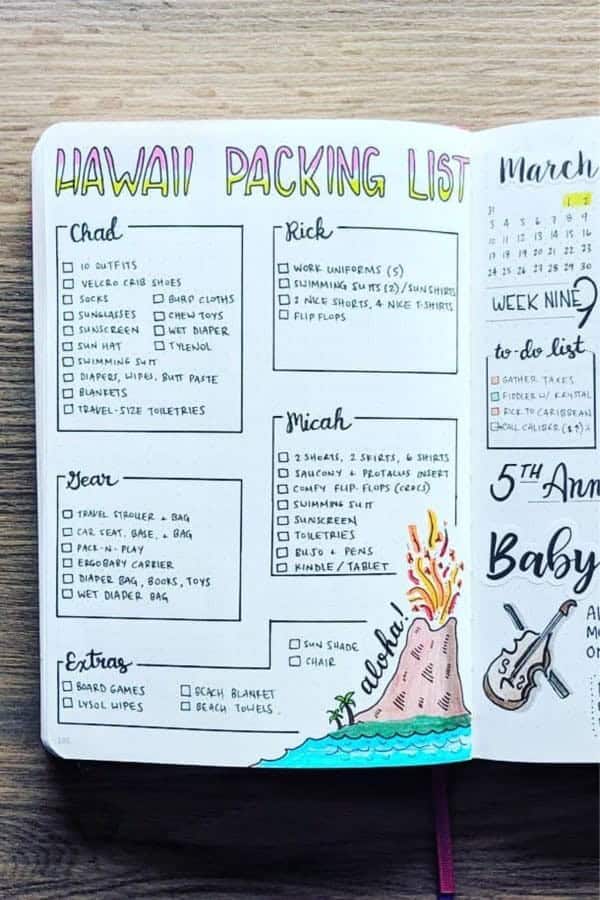 HAWAII PACKING LIST
Chad
10 OUTFITS
VELCRO CRIB SHOES
SOCKS
SUNGLASSES
SUNSCREEN
SUN HAT
SWIMMING SUIT
DIAPERS, WIPES, BUTT PASTE
BLANKETS
TRAVEL-SIZE TOILETRIES
BURP CLOTHS
CHEW TOYS
WET DIAPER
TYLENOL
Rick
WORK UNIFORMS (5)
SWIMMING SUITS (2)/SUNSHIRTS
2 NICE SHORTS, 4 NICE T-SHIRTS
FLIP FLOPS
Gear
TRAVEL STROLLER + BAG
CAR SEAT, BASE, + BAG
PACK-N-PLAY
ERGOBABY CARRIER
DIAPER BAG, BOOKS, TOYS
WET DIAPER BAG
Micah
2 SHORTS, 2 SKIRTS, 6 SHIRTS
SAUCONY + PROTALUS INSERT
COMFY FLIP-FLOPS (CROCS)
SWIMMING SUIT
SUNSCREEN
TOILETRIES
BUJO + PENS
KINDLE / TABLET
Extras
BOARD GAMES
LYSOL WIPES
BEACH BLANKET
BEACH TOWELS
SUN SHADE
CHAIR
aloha!
March
1 2
31
3 4 5 6 7 8 9
10 11 12 13 14 15 16
17 18 19 20 21 22 23
24 25 26 27 28 29 30
WEEK NINE
to-do list
GATHER TAXES
FIDDLER W/ KRYSTAL
RICK TO CARIBBEAN
CALL CALIBER
5TH Ann
Baby